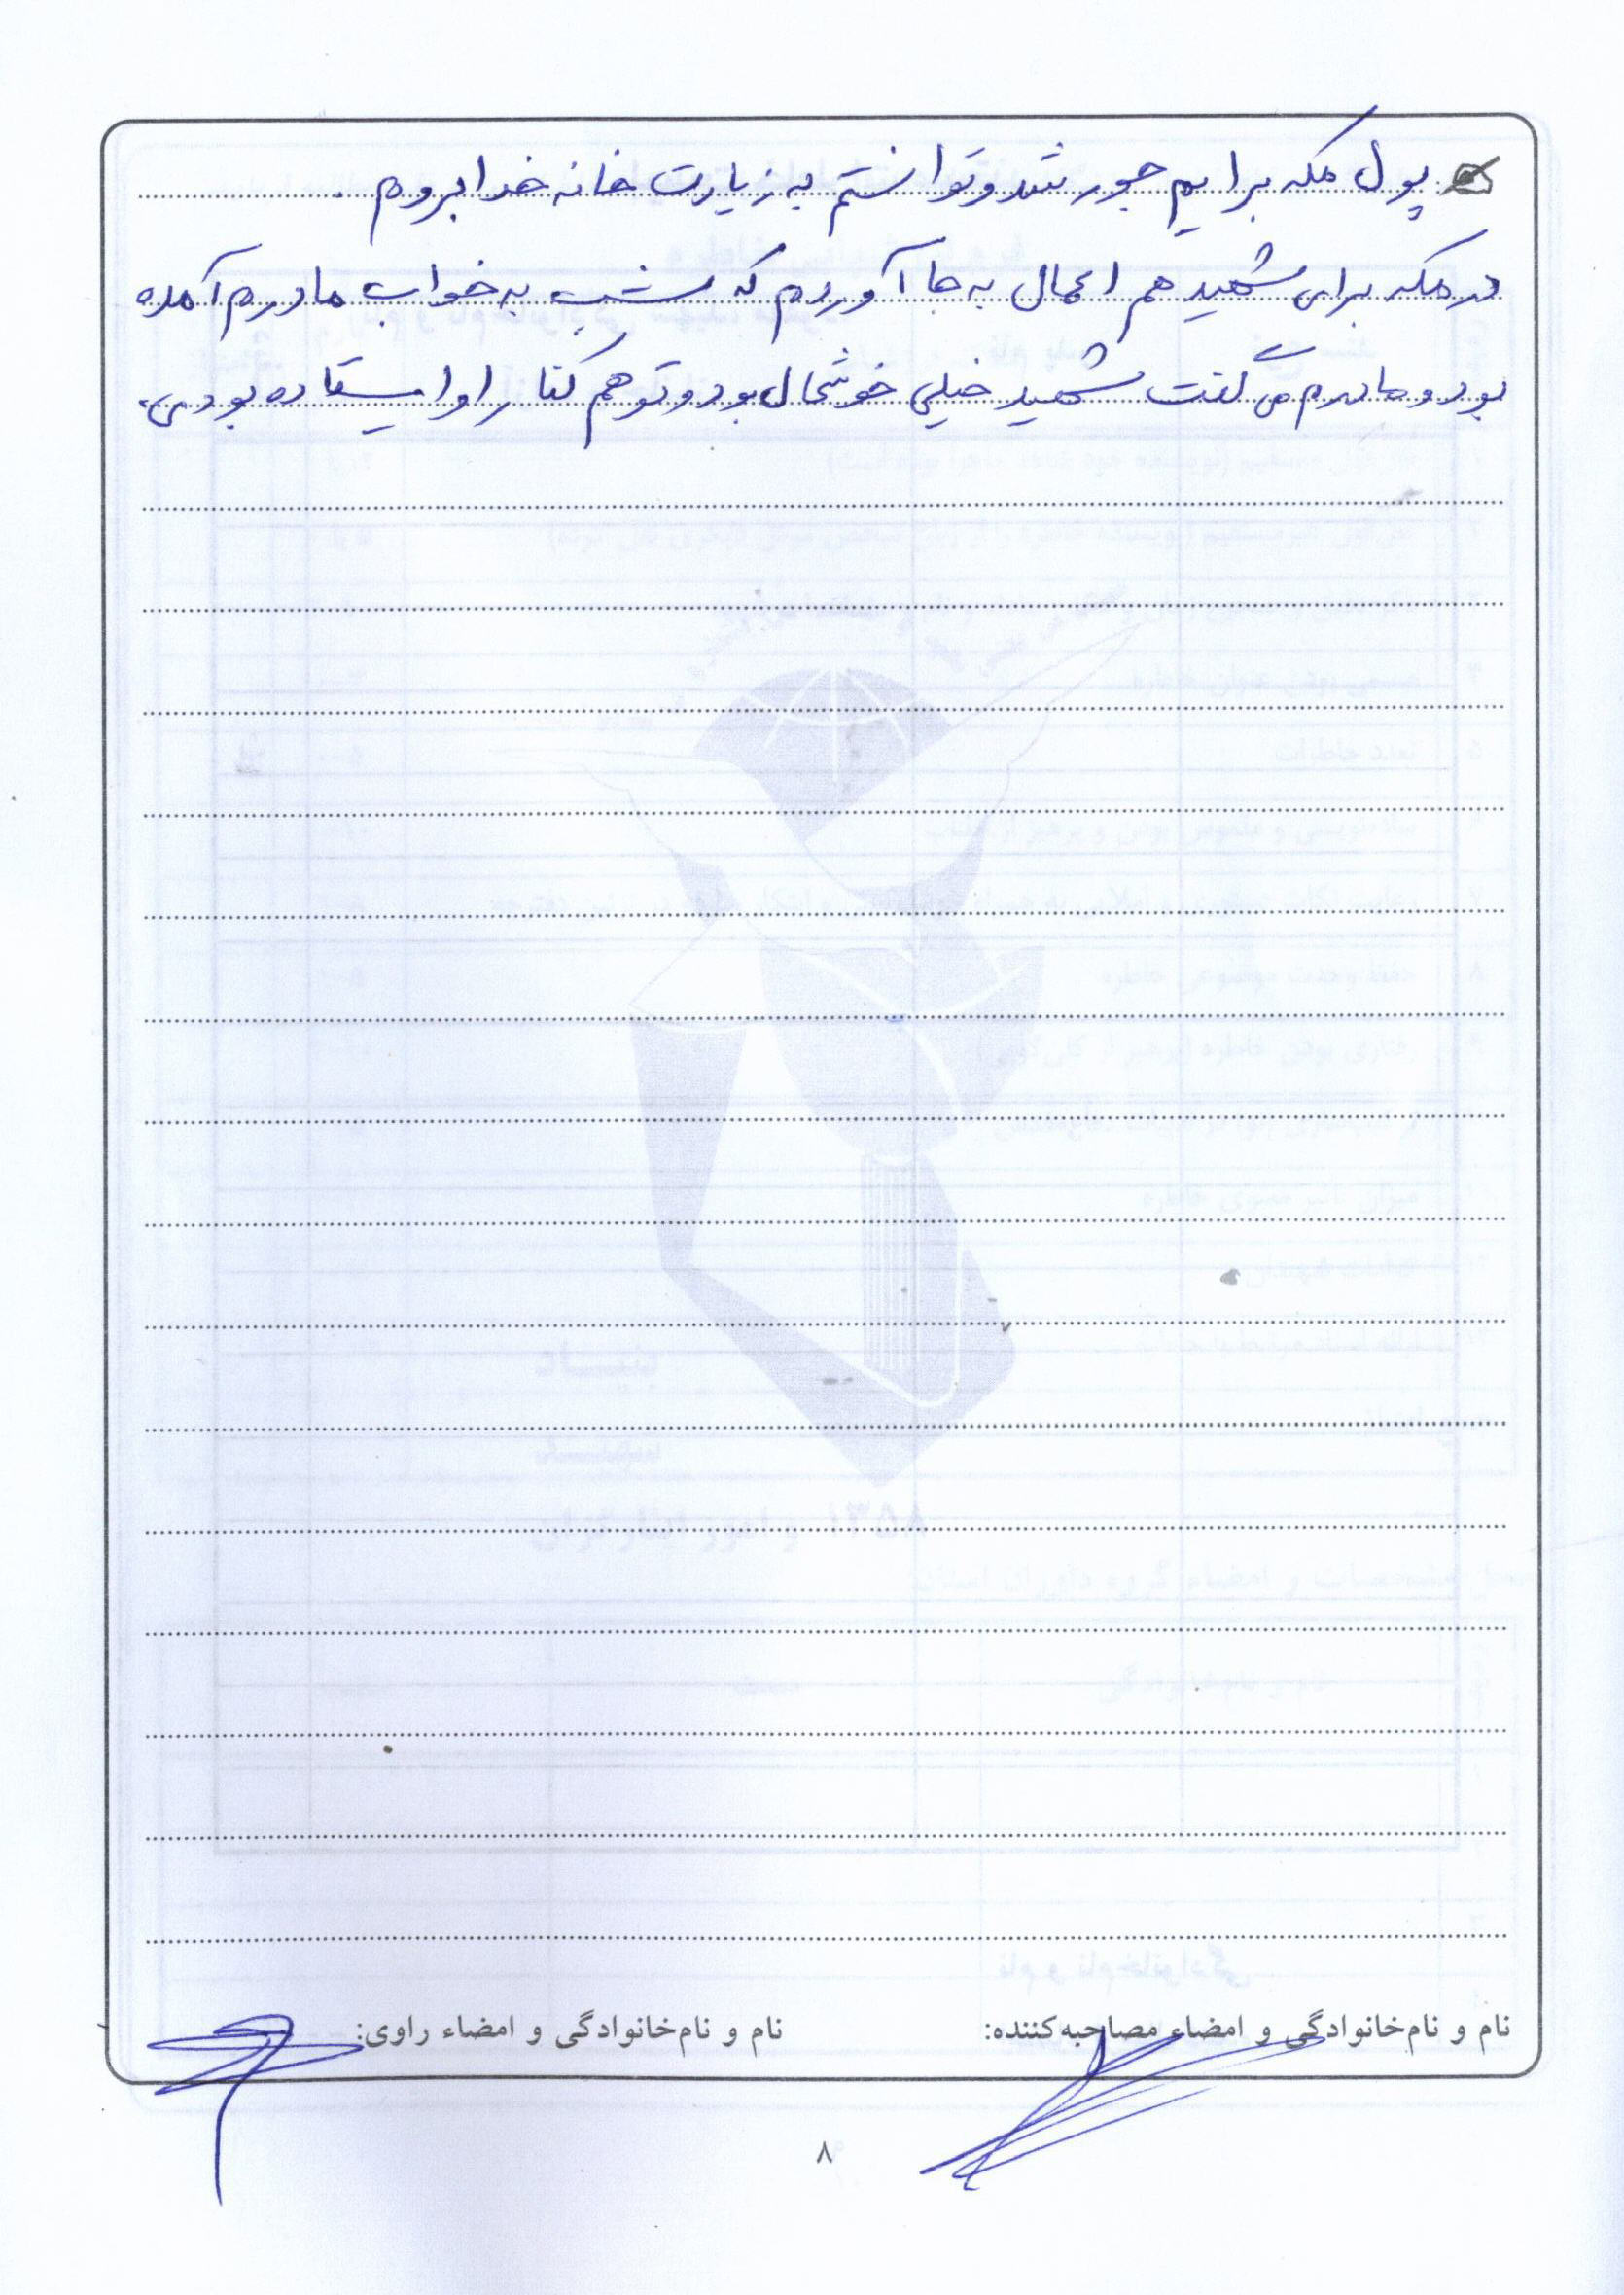 پول مکه برایم جور شد و توانستم به زیارت خانه خدا بروم .
در مکه برای شهید هم اعمال به جا آوردم که شب به خواب مادرم آمده
بود و مادرم می گفت شهید خیلی خوشحال بود و تو هم کنار او ایستاده بودی.
نام و نام‌خانوادگی و امضاء مصاحبه‌کننده:
نام و نام‌خانوادگی و امضاء راوی:
۸